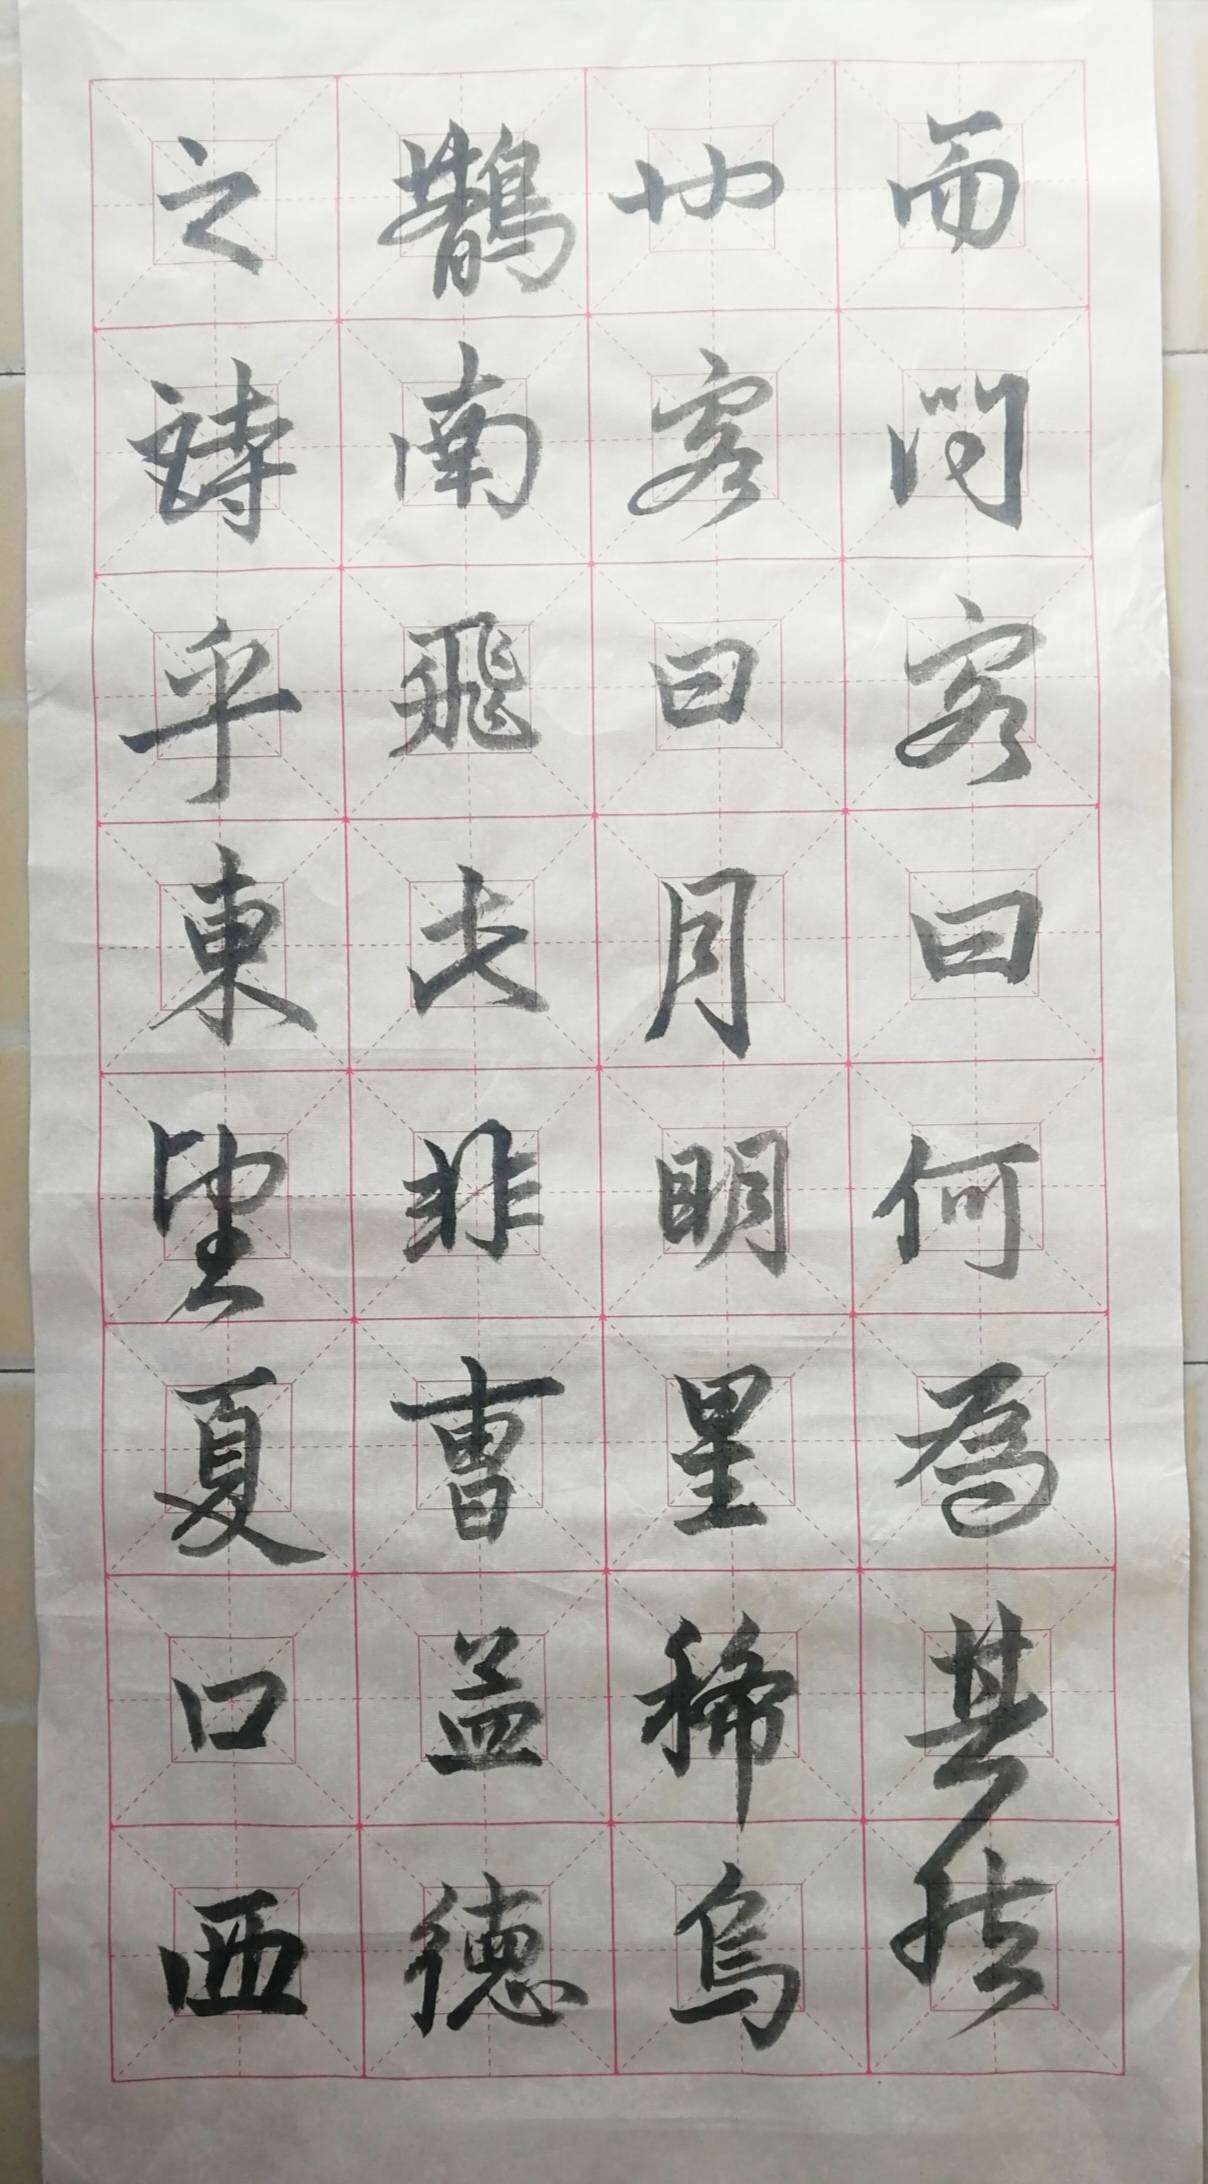 而问客曰何為其然
也客曰月明星稀烏
鵲南飛此非曹孟德
之詩乎東望夏口西